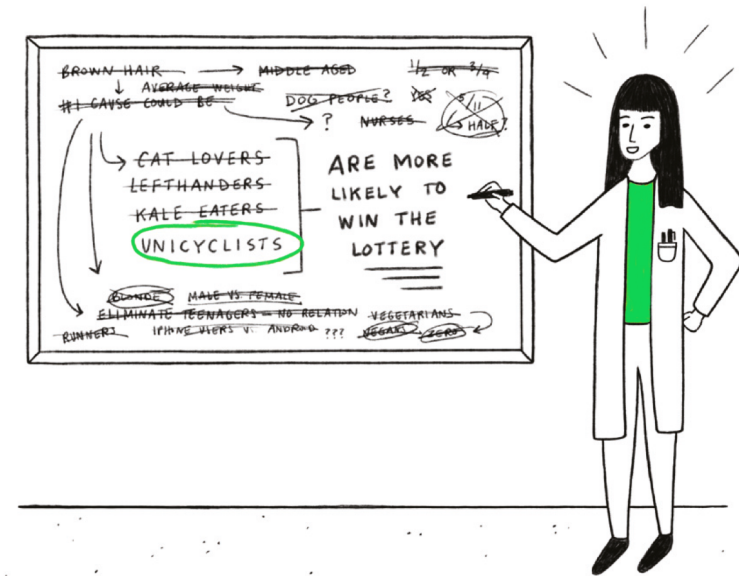 BROWN HAIR → MIDDLE AGED 1/2 OR 3/4
↓ AVERAGE WEIGHT
#1 CAUSE COULD BE
DOG PEOPLE? YES
5/11
↳ HALF?
? NURSES
CAT LOVERS
LEFTHANDERS
KALE EATERS
UNICYCLISTS
ARE MORE
LIKELY TO
WIN THE
LOTTERY
BLONDE MALE VS. FEMALE
ELIMINATE TEENAGERS = NO RELATION VEGETARIANS
RUNNERS IPHONE USERS V. ANDROID ??? VEGANS ZERO